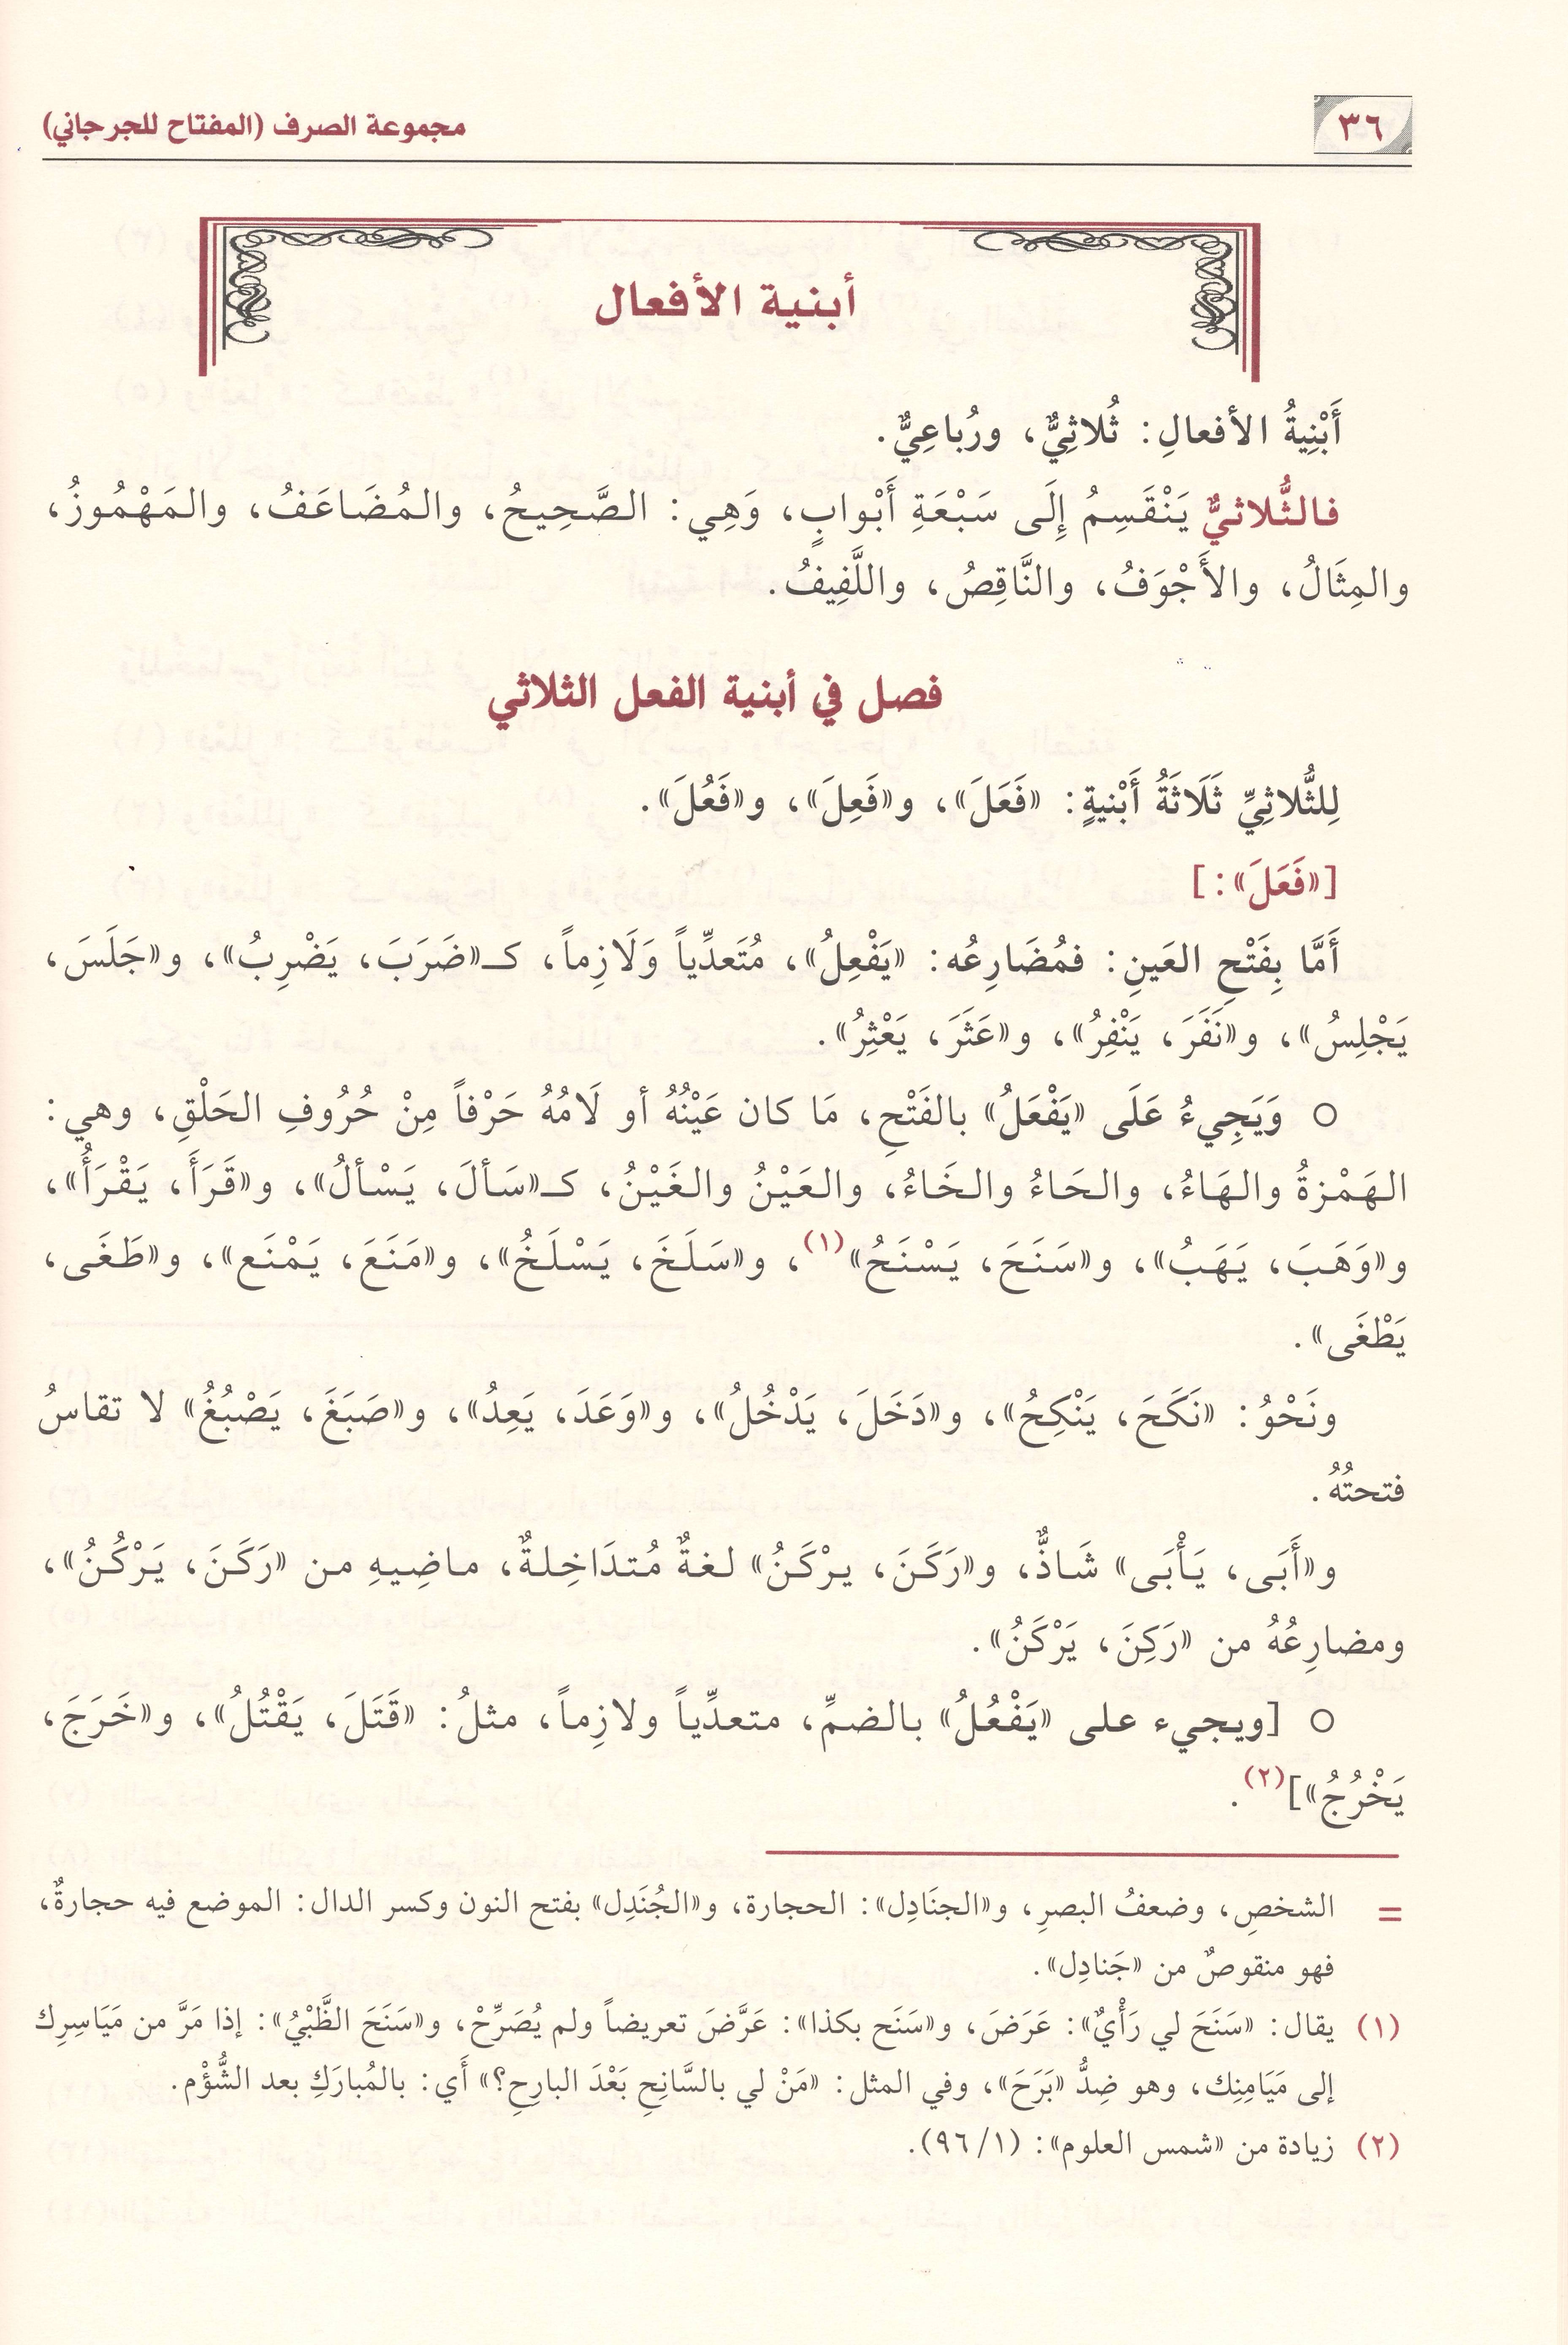 ٣٦
مجموعة الصرف (المفتاح للجرجاني)
أبنية الأفعال
أَبْنِيةُ الأفعالِ: ثُلاثِيٌّ، ورُباعِيٌّ.
فالثُّلاثيٌّ يَنْقَسِمُ إِلَى سَبْعَةِ أَبْوابٍ، وَهِي: الصَّحِيحُ، والمُضَاعَفُ، والمَهْمُوزُ،
والمِثَالُ، والأَجْوَفُ، والنَّاقِصُ، واللَّفِيفُ.
فصل في أبنية الفعل الثلاثي
لِلثُّلاثِيِّ ثَلَاثَةُ أَبْنيةٍ: «فَعَلَ»، و«فَعِلَ»، و«فَعُلَ».
[«فَعَلَ»:]
أَمَّا بِفَتْحِ العَينِ: فمُضَارِعُه: «يَفْعِلُ»، مُتَعدِّياً وَلَازِماً، كـ«ضَرَبَ، يَضْرِبُ»، و«جَلَسَ،
يَجْلِسُ»، و«نَفَرَ، يَنْفِرُ»، و«عَثَرَ، يَعْثِرُ».
○ وَيَجِيءُ عَلَى «يَفْعَلُ» بالفَتْحِ، مَا كان عَيْنُهُ أو لَامُهُ حَرْفاً مِنْ حُرُوفِ الحَلْقِ، وهي:
الهَمْزةُ والهَاءُ، والحَاءُ والخَاءُ، والعَيْنُ والغَيْنُ، كـ«سَألَ، يَسْألُ»، و«قَرَأَ، يَقْرَأُ»،
و«وَهَبَ، يَهَبُ»، و«سَنَحَ، يَسْنَحُ»(١)، و«سَلَخَ، يَسْلَخُ»، و«مَنَعَ، يَمْنَع»، و«طَغَى،
يَطْغَى».
ونَحْوُ: «نَكَحَ، يَنْكِحُ»، و«دَخَلَ، يَدْخُلُ»، و«وَعَدَ، يَعِدُ»، و«صَبَغَ، يَصْبُغُ» لا تقاسُ
فتحتُهُ.
و«أَبَى، يَأْبَى» شَاذٌّ، و«رَكَنَ، يرْكَنُ» لغةٌ مُتدَاخِلةٌ، ماضِيهِ من «رَكَنَ، يَرْكُنُ»،
ومضارِعُهُ من «رَكِنَ، يَرْكَنُ».
○ [ويجيء على «يَفْعُلُ» بالضمِّ، متعدِّياً ولازِماً، مثلُ: «قَتَلَ، يَقْتُلُ»، و«خَرَجَ،
يَخْرُجُ»](٢).
= الشخصِ، وضعفُ البصرِ، و«الجنَادِل»: الحجارة، و«الجُنَدِل» بفتح النون وكسر الدال: الموضع فيه حجارةٌ،
فهو منقوصٌ من «جَنادِل».
(١) يقال: «سَنَحَ لي رَأْيٌ»: عَرَضَ، و«سَنَح بكذا»: عَرَّضَ تعريضاً ولم يُصَرِّحْ، و«سَنَحَ الظَّبْيُ»: إذا مَرَّ من مَيَاسِرِك
إلى مَيَامِنِك، وهو ضِدُّ «بَرَحَ»، وفي المثل: «مَنْ لي بالسَّانِحِ بَعْدَ البارِحِ؟» أَي: بالمُبارَكِ بعد الشُّؤْم.
(٢) زيادة من «شمس العلوم»: (٩٦/١).